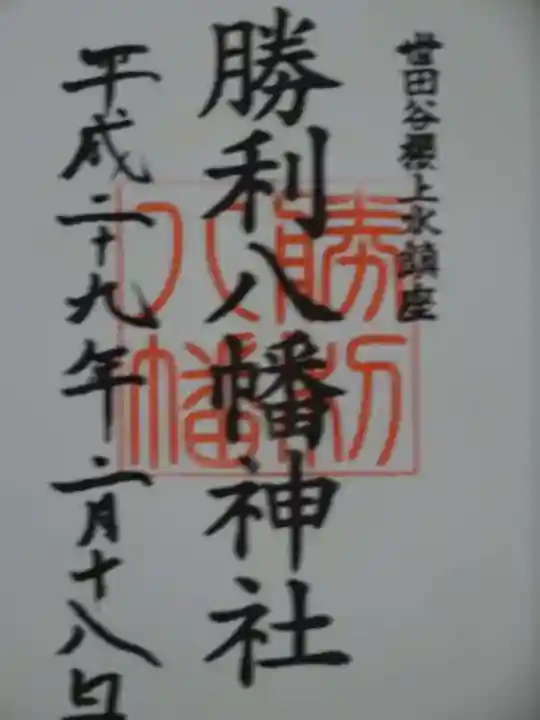 世田谷櫻上水鎮座
勝利八幡神社
勝利
八幡
平成二十九年二月十八日